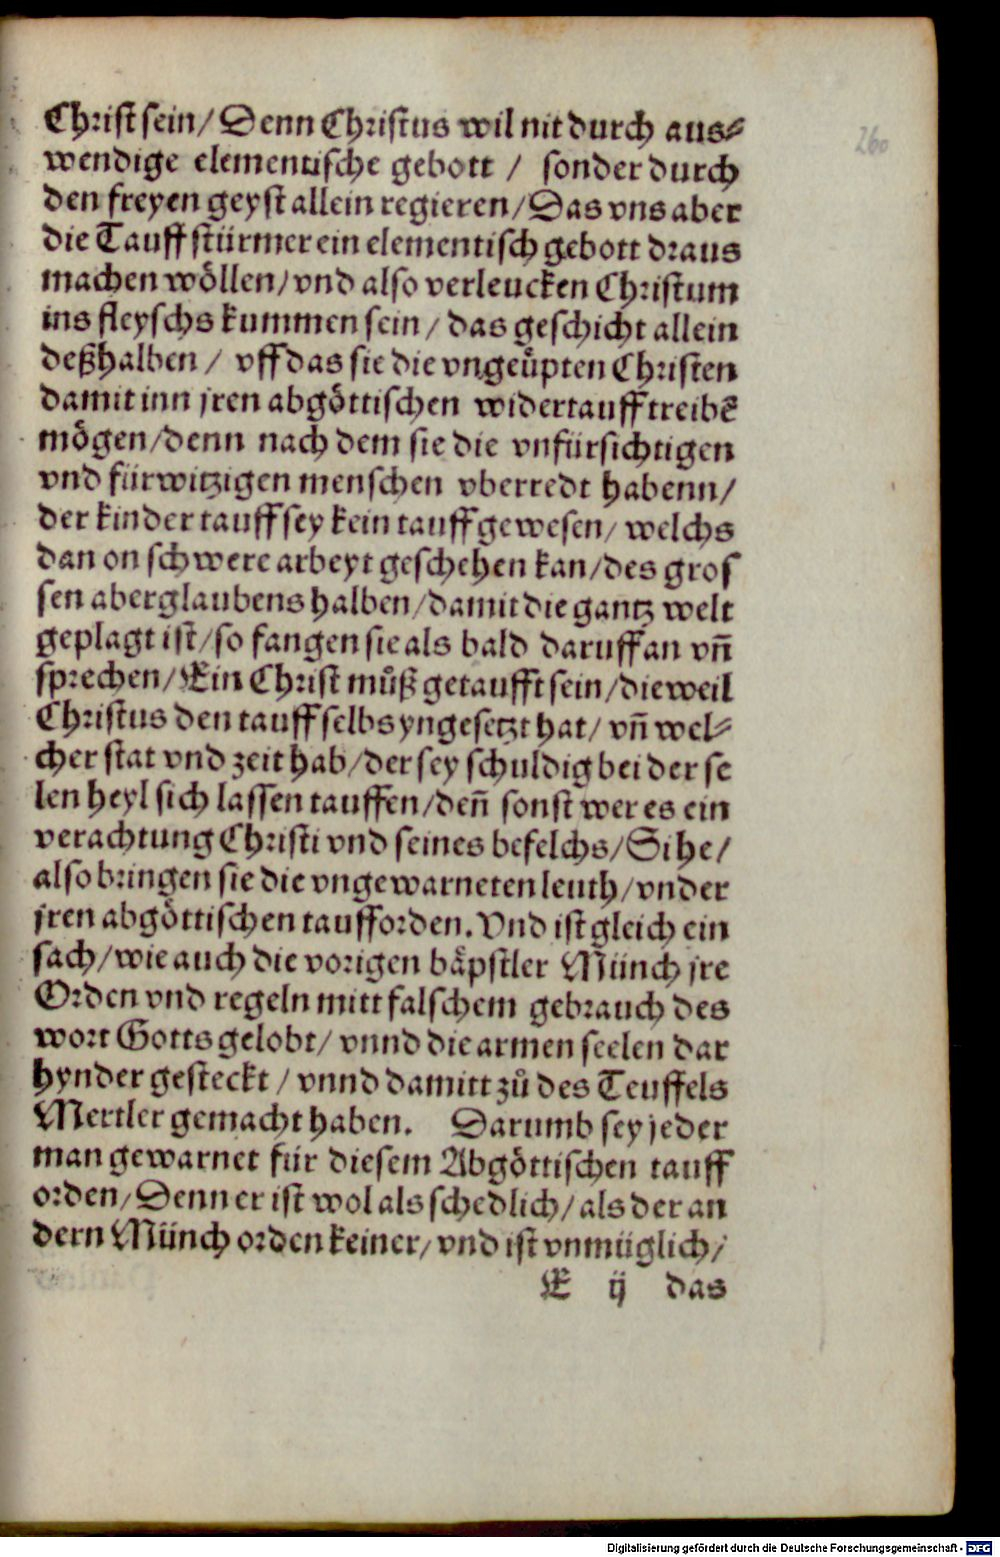 Christ sein/ Denn Christus wil nit durch aus⸗
wendige elementische gebott / sonder durch
den freyen geyst allein regieren/ Das vns aber
die Tauff stürmer ein elementisch gebott draus
machen wöllen/ vnd also verleucken Christum
ins fleyschs kummen sein / das geschicht allein
deßhalben / vff das sie die vngeuͤpten Christen
damit inn jren abgöttischen widertauff treibẽ
mögen/ denn nach dem sie die vnfürsichtigen
vnd fürwitzigen menschen vberredt habenn/
der kinder tauff sey kein tauff gewesen/ welchs
dan on schwere arbeyt geschehen kan/ des gros
sen aberglaubens halben/ damit die gantz welt
geplagt ist/ so fangen sie als bald daruff an vñ
sprechen/ Ein Christ můß getaufft sein/ die weil
Christus den tauff selbs yngesetzt hat/ vñ wel⸗
cher stat vnd zeit hab/ der sey schuldig bei der se
len heyl sich lassen tauffen/ deñ sonst wer es ein
verachtung Christi vnd seines befelchs/ Sihe/
also bringen sie die vngewarneten leuth/ vnder
jren abgöttischen taufforden. Vnd ist gleich ein
sach/ wie auch die vorigen bäpstler Münch jre
Orden vnd regeln mitt falschem gebrauch des
wort Gotts gelobt/ vnnd die armen seelen dar
hynder gesteckt / vnnd damitt zů des Teuffels
Mertler gemacht haben. Darumb sey jeder
man gewarnet für diesem Abgöttischen tauff
orden/ Denn er ist wol als schedlich/ als der an
dern Münch orden keiner/ vnd ist vnmüglich/
E ij das
260
Digitalisierung gefördert durch die Deutsche Forschungsgemeinschaft - DFG